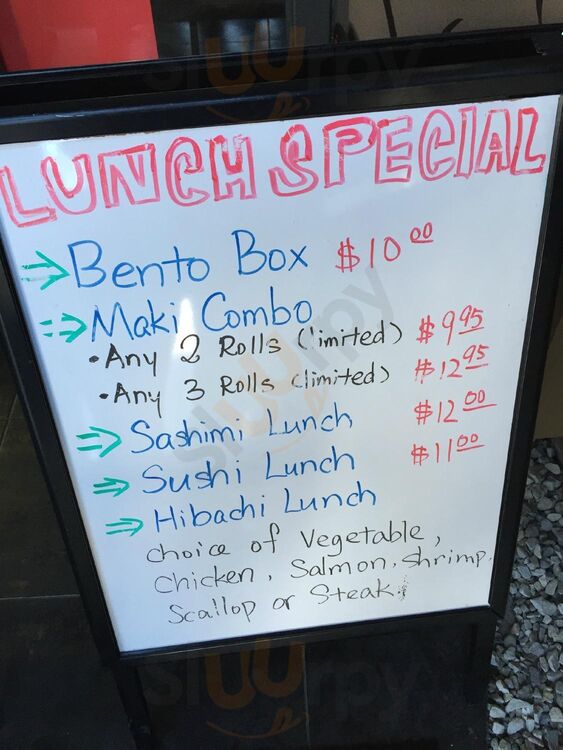 LUNCH SPECIAL
⇒ Bento Box $10.00
⇒ Maki Combo
• Any 2 Rolls (limited) $9.95
• Any 3 Rolls (limited) $12.95
⇒ Sashimi Lunch $12.00
⇒ Sushi Lunch $11.00
⇒ Hibachi Lunch
choice of Vegetable,
Chicken, Salmon, Shrimp,
Scallop or Steak.
sluurpy